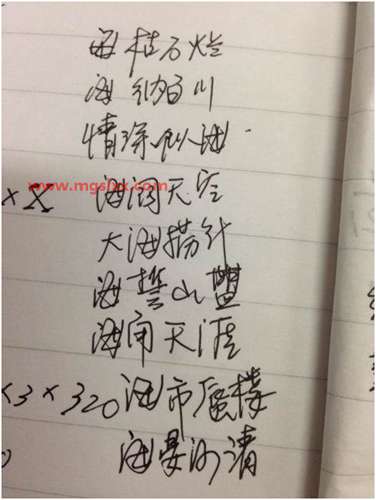 海枯石烂
海纳百川
情深似海.
× X 海阔天空
大海捞针
海誓山盟
海角天涯
×3×320 海市蜃楼
海晏河清